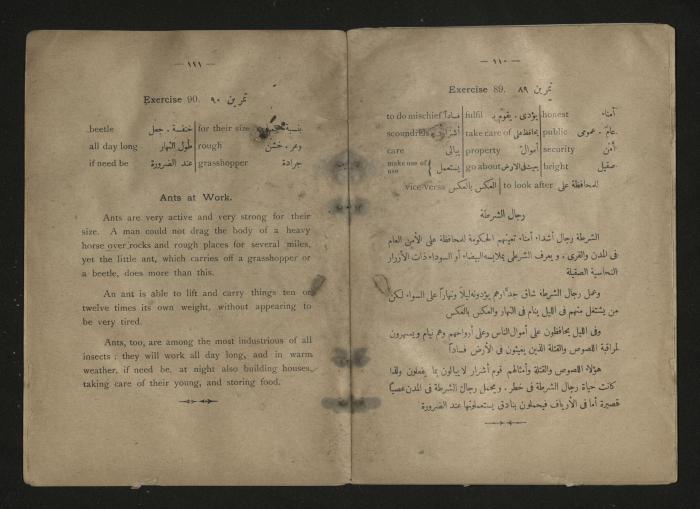 — ١١٠ —
Exercise 89. تمرين ٨٩
to do mischief فساداً fulfil يؤدى . يقوّم بـ honest أمناء
scoundrels أشرار take care of يحافظ على public عامّ . عمومى
care يبالى property أموال security أمْن
make use of
use يستعمل go about يعيث فى الارض bright صقيل
vice versa العكس بالعكس to look after لمحافظة على
رجال الشرطة
الشرطة رجال أشداء أمناء تعينهم الحكومة لمحافظة على الأمن العام
فى المدن والقرى . و يعرف الشرطى بملابسه البيضاء أو السوداء ذات الأزرار
النحاسية الصقيلة
وعمل رجال الشرطة شاق جداً وهم يؤدونه ليلاً ونهاراً على السواء لكن
من يشتغل منهم فى الليل ينام فى النهار والعكس بالعكس
وفى الليل يحافظون على أموال الناس وعلى أرواحهم وهم نيام و يسهرون
لمراقبة اللصوص والقتلة الذين يعيثون فى الأرض فساداً
هؤلاء اللصوص والقتلة وأمثالهم قوم أشرار لا يبالون بما يفعلون ولذا
كانت حياة رجال الشرطة فى خطر . ويحمل رجال الشرطة فى المدن عصيّاً
قصيرة أما فى الأرياف فيحملون بنادق يستعملونها عند الضرورة
— ١١١ —
Exercise 90. تمرين ٩٠
beetle خنفسة . جعل for their size بنسبة
all day long طول النهار rough وعر . خشن
if need be عند الضرورة grasshopper جرادة
Ants at Work.
Ants are very active and very strong for their
size. A man could not drag the body of a heavy
horse over rocks and rough places for several miles,
yet the little ant, which carries off a grasshopper or
a beetle, does more than this.
An ant is able to lift and carry things ten or
twelve times its own weight, without appearing to
be very tired.
Ants, too, are among the most industrious of all
insects : they will work all day long, and in warm
weather, if need be, at night also building houses,
taking care of their young, and storing food.